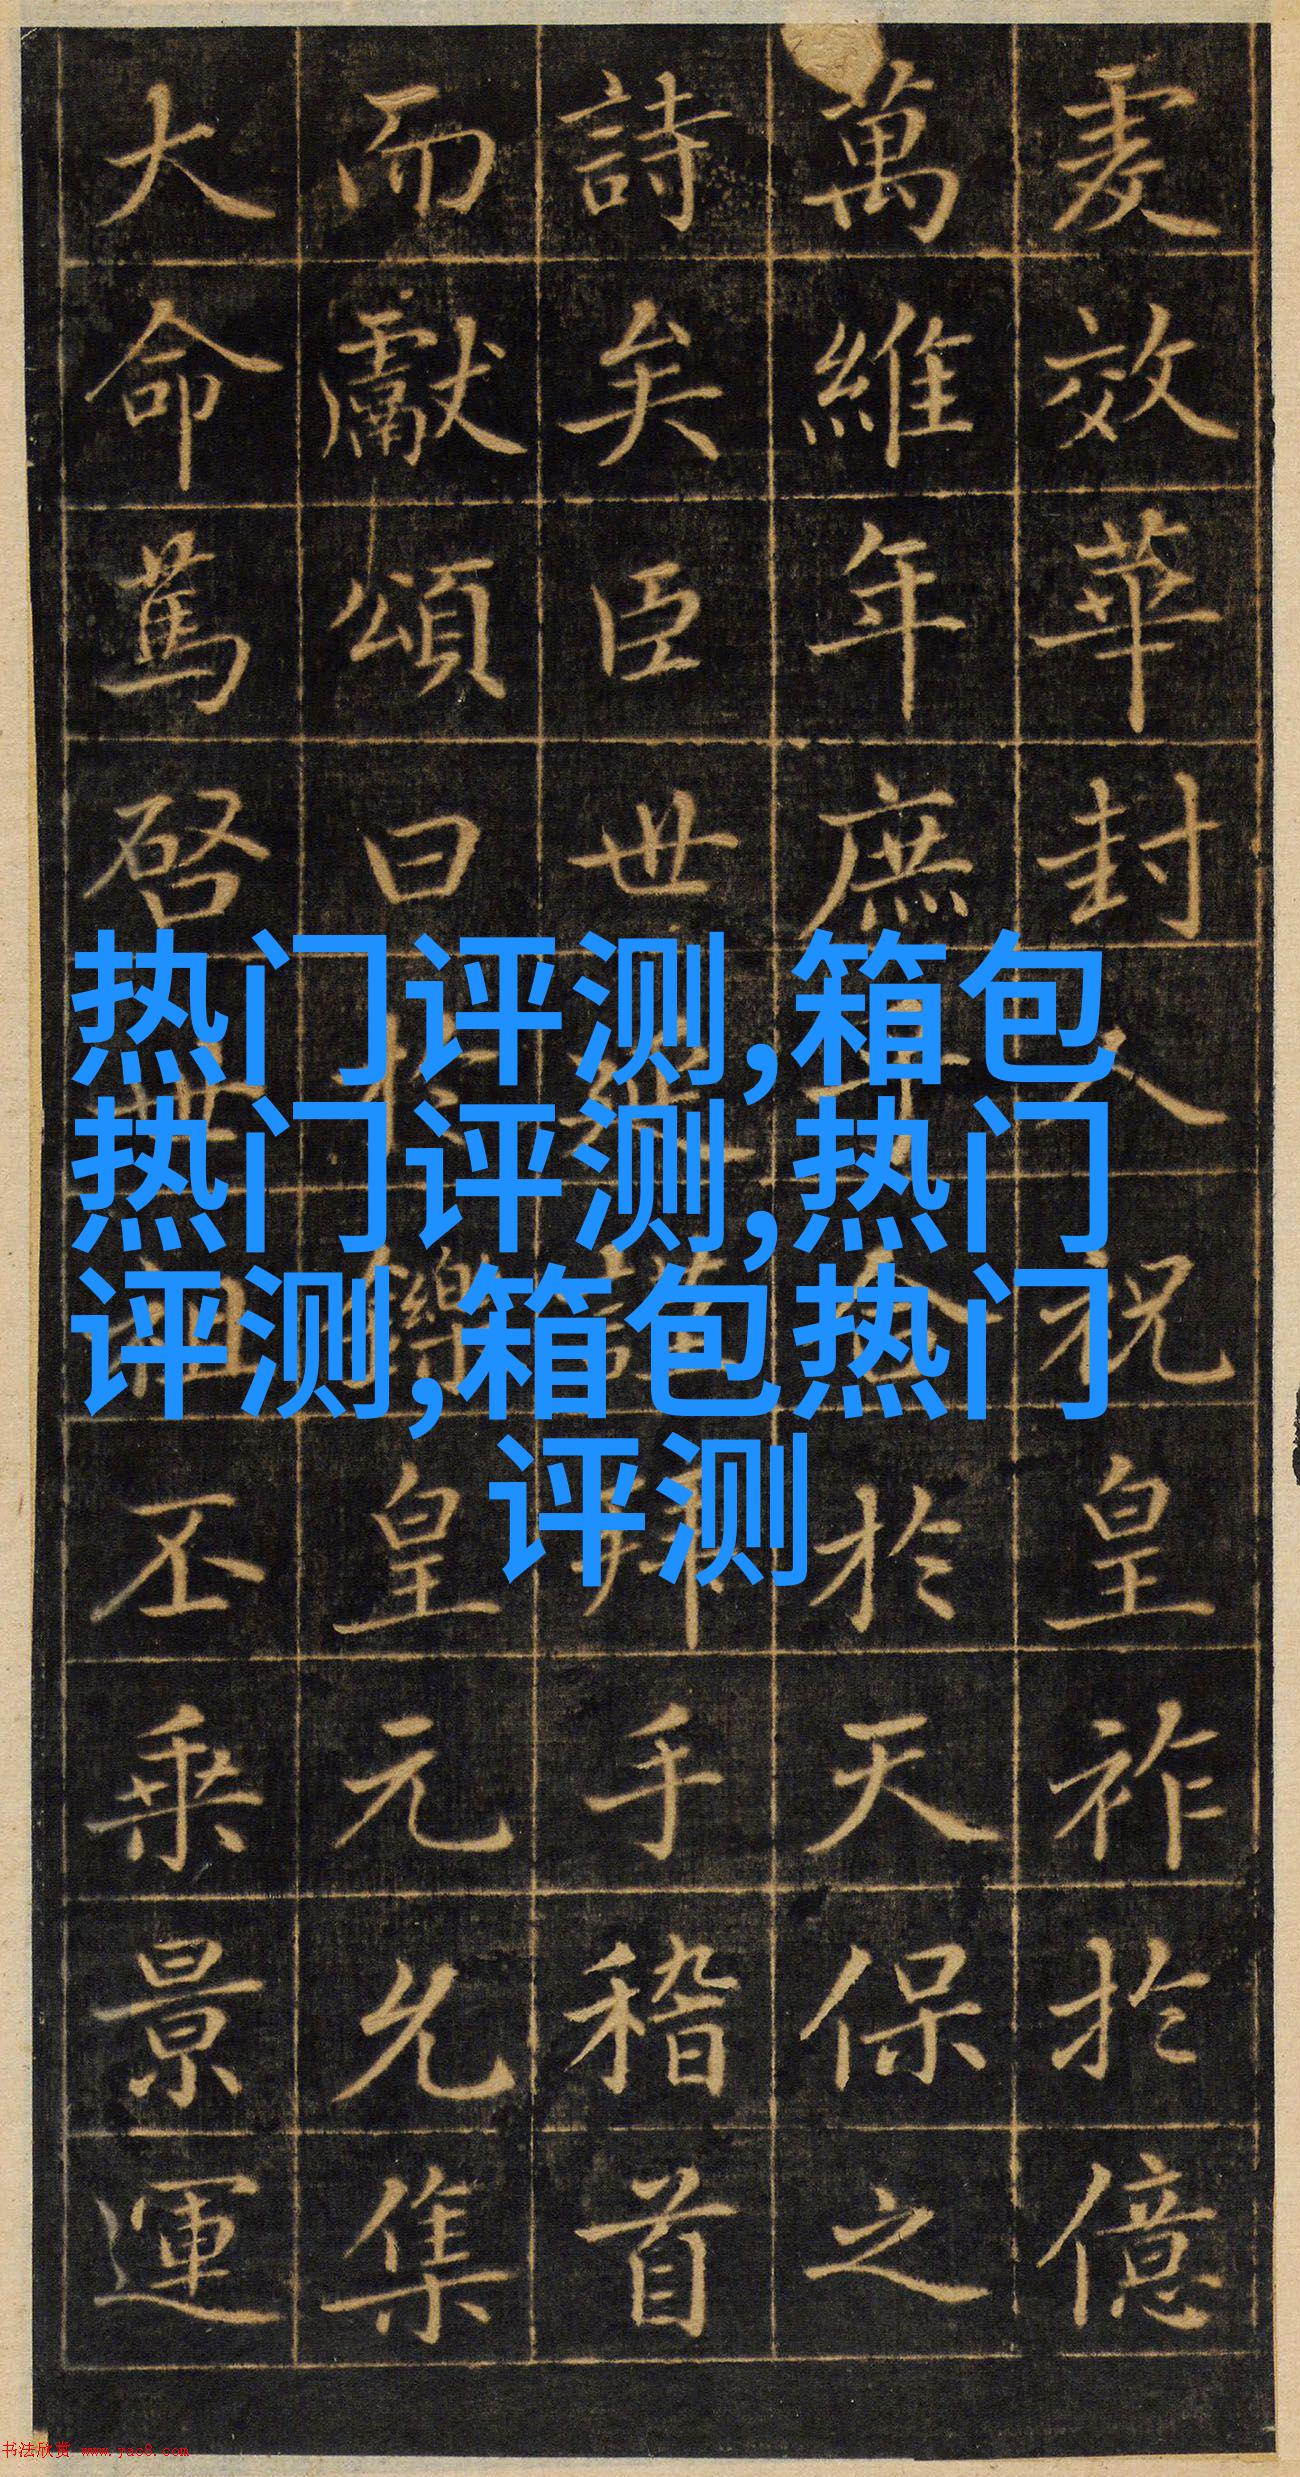 虔效華封人祝皇祚於億
萬維年庶於天保之
詩矣臣世延謹拜手稽首
而獻頌曰於鑠皇元允集
大命篤啓世祖丕乘景運
热门评测,箱包
热门评测,热门
评测,箱包热门
评测
书法欣赏 www.yac8.com